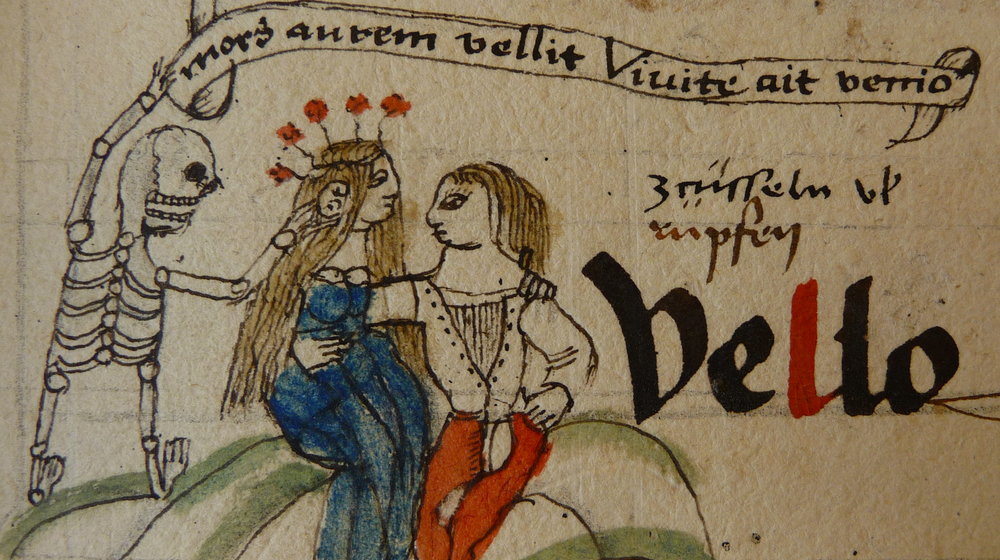 mors aurem vellit Vivite ait venio
zcüsseln vl
rüpfen
Vello